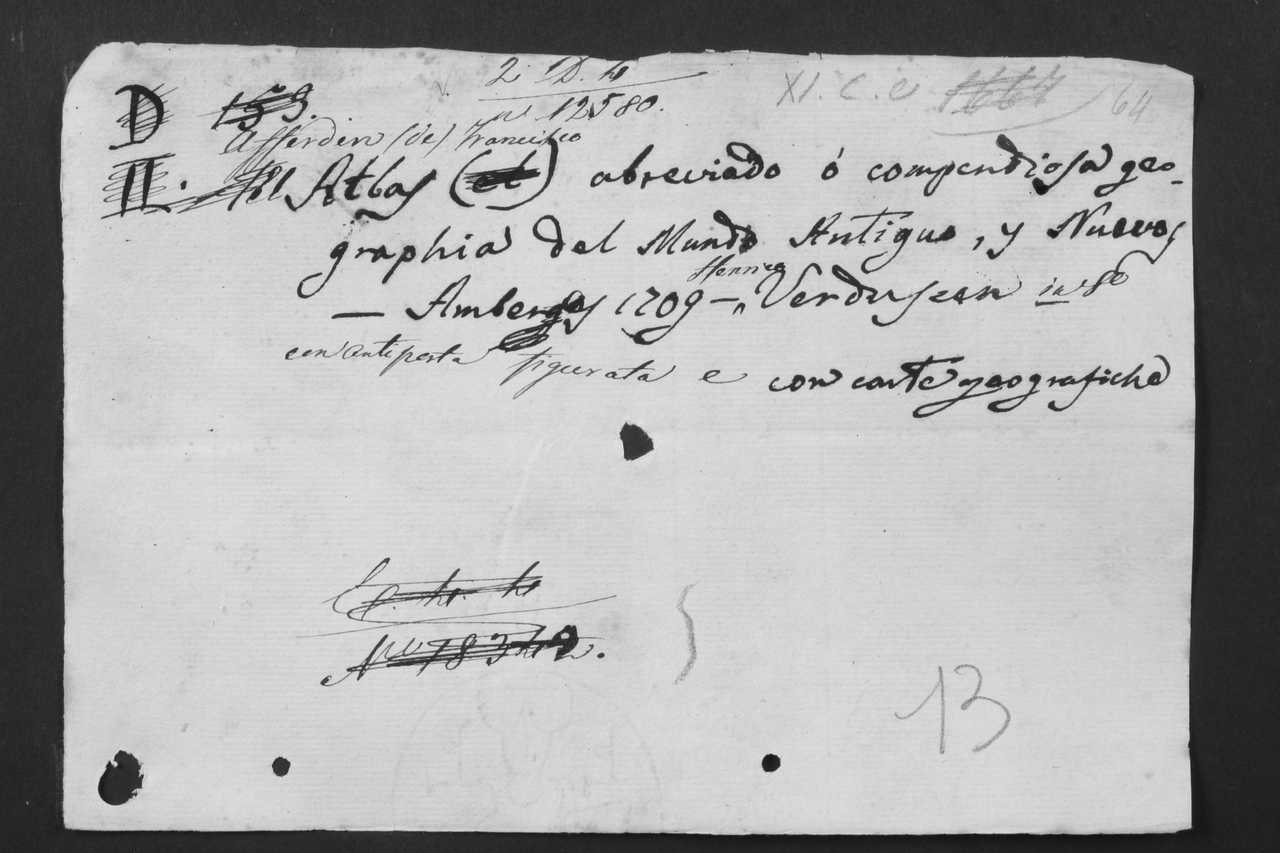 2. D. h
D 153. nº 12580. XI. C. C 64
Afferden (de) Francisco
II. El Atlas (el) abreviado ó compendiosa geo-
graphia del Mundo Antiguo, y Nuevo,
Henrico
— Amberes 1709 — Verdussen in 8º
con antiporta figurata e con carte geografiche
Nº 18342.
13